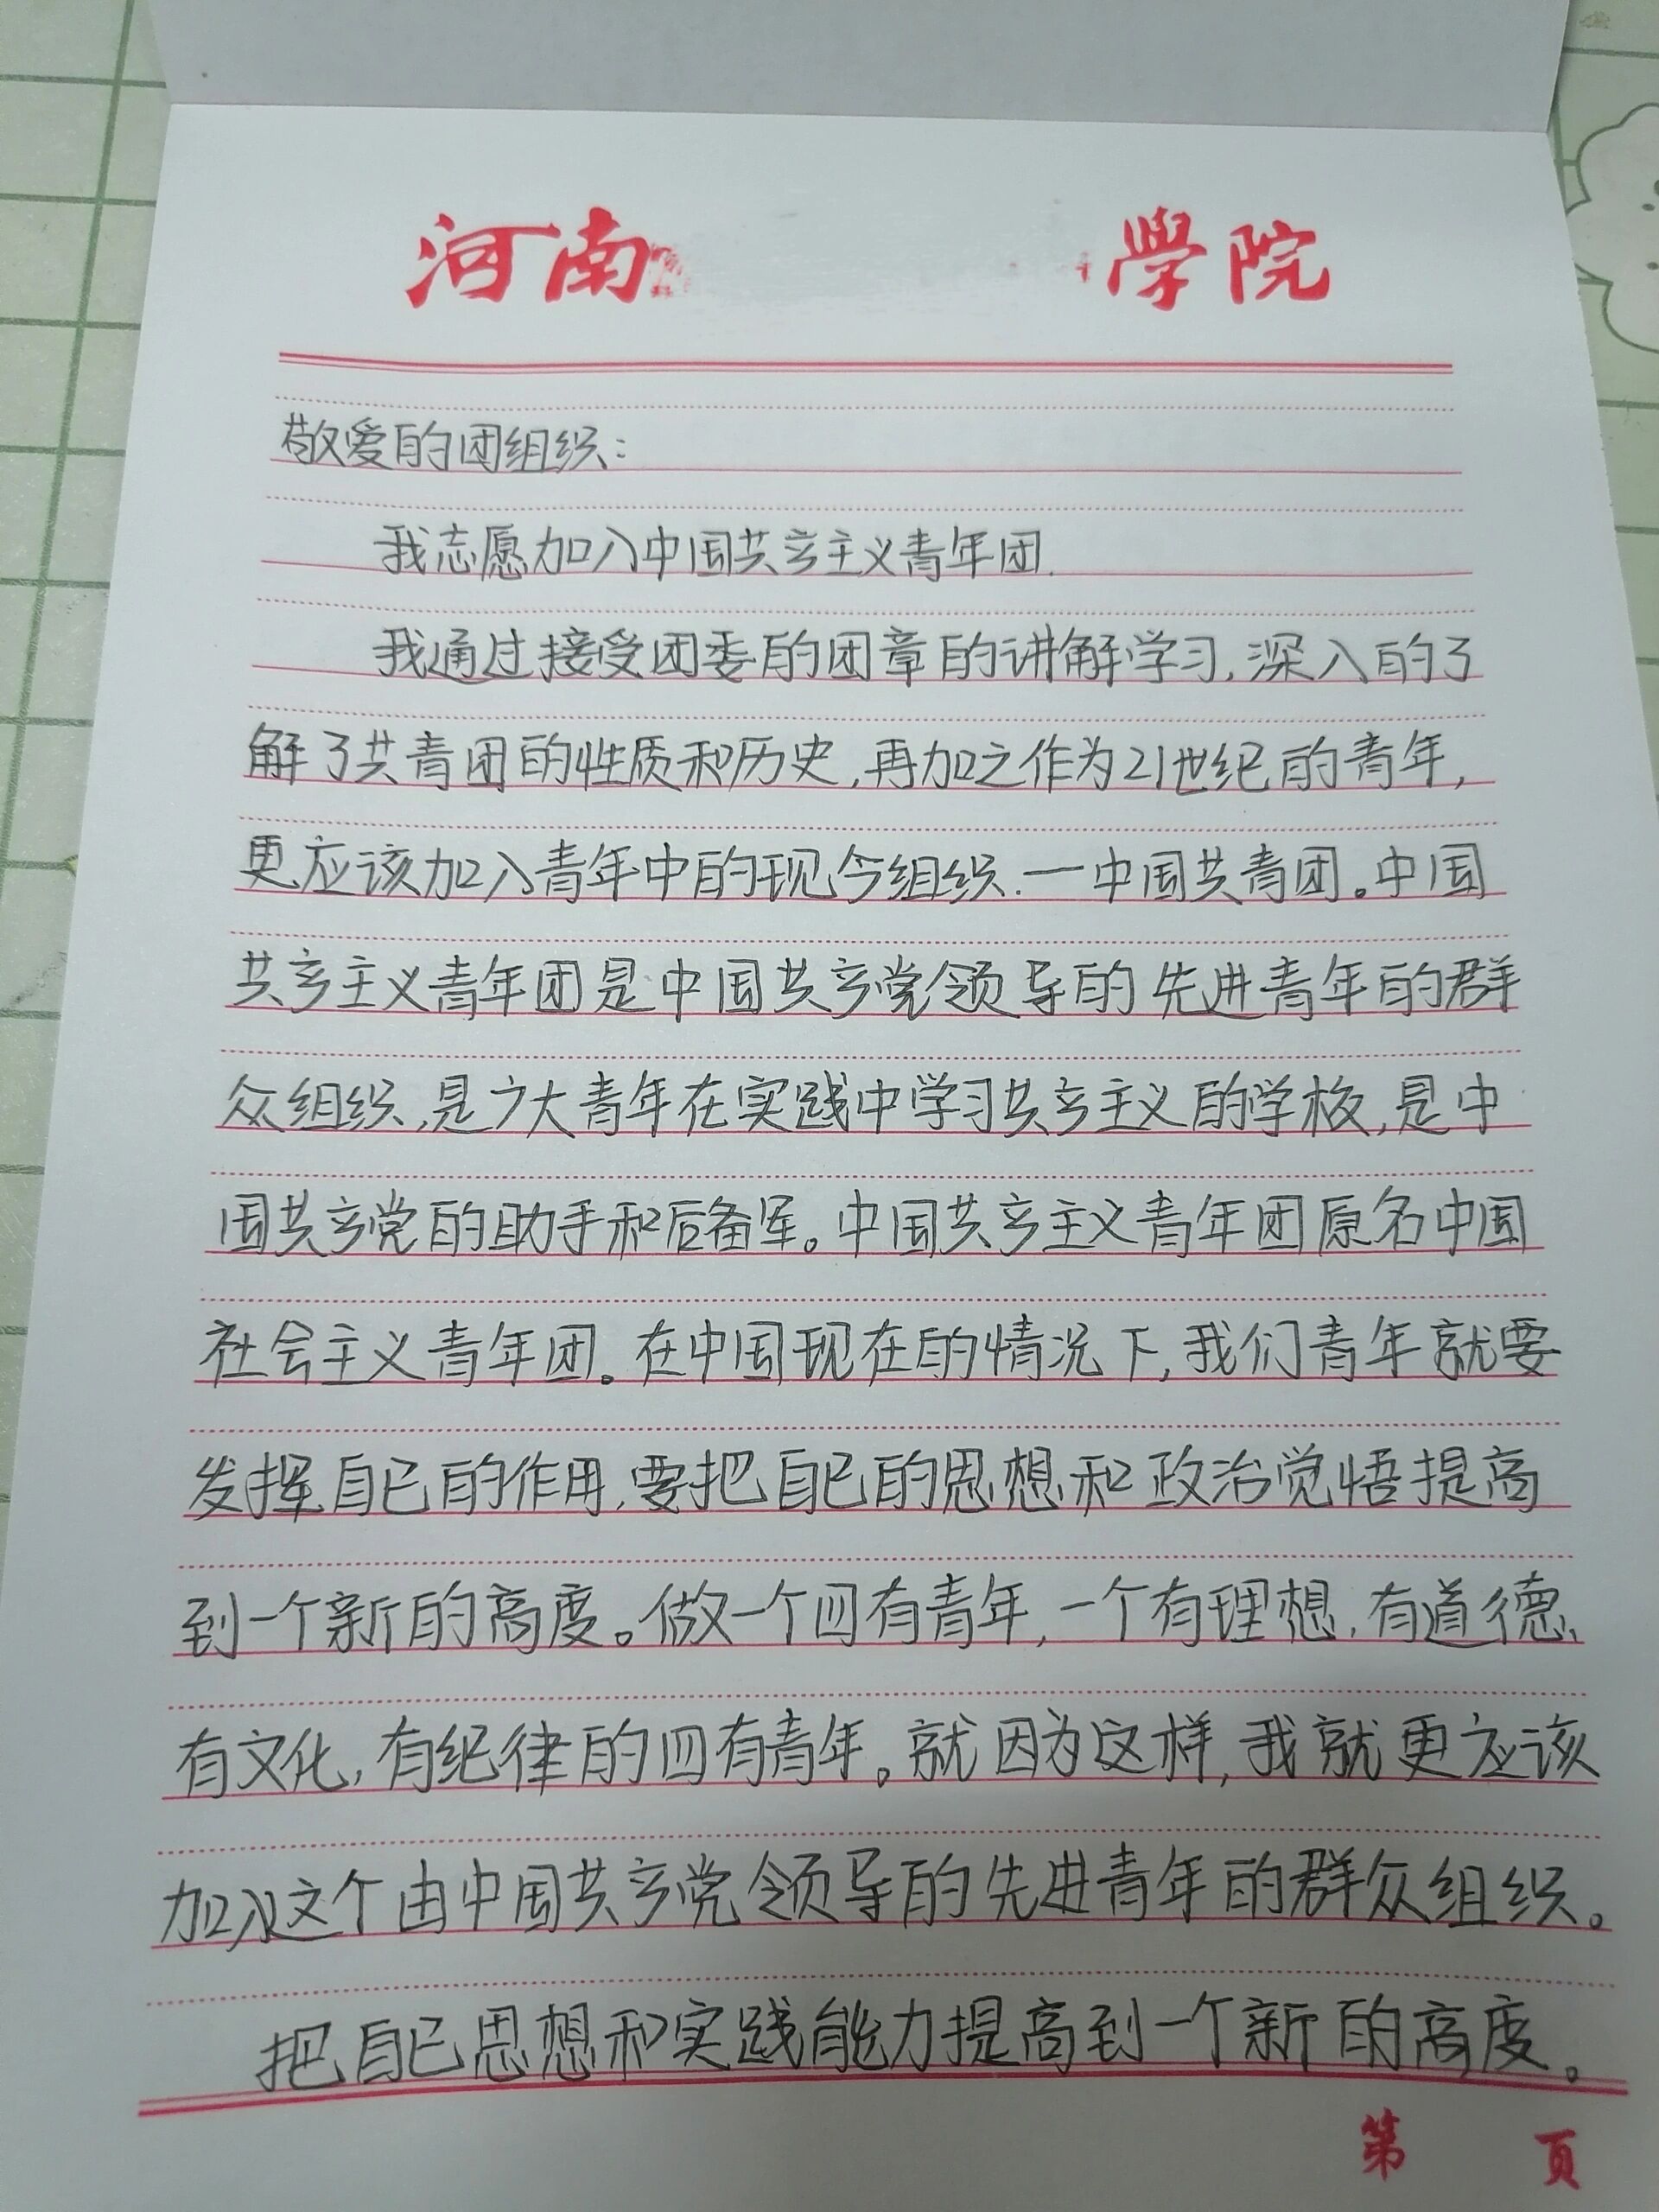 河南 學院
敬爱的团组织:
我志愿加入中国共产主义青年团.
我通过接受团委的团章的讲解学习,深入的了
解了共青团的性质和历史,再加之作为21世纪的青年,
更应该加入青年中的现今组织.一中国共青团。中国
共产主义青年团是中国共产党领导的先进青年的群
众组织,是广大青年在实践中学习共产主义的学校,是中
国共产党的助手和后备军。中国共产主义青年团原名中国
社会主义青年团。在中国现在的情况下,我们青年就要
发挥自己的作用,要把自己的思想和政治觉悟提高
到一个新的高度。做一个四有青年,一个有理想,有道德、
有文化,有纪律的四有青年。就因为这样,我就更应该
加入这个由中国共产党领导的先进青年的群众组织。
把自己思想和实践能力提高到一个新的高度。
第 页